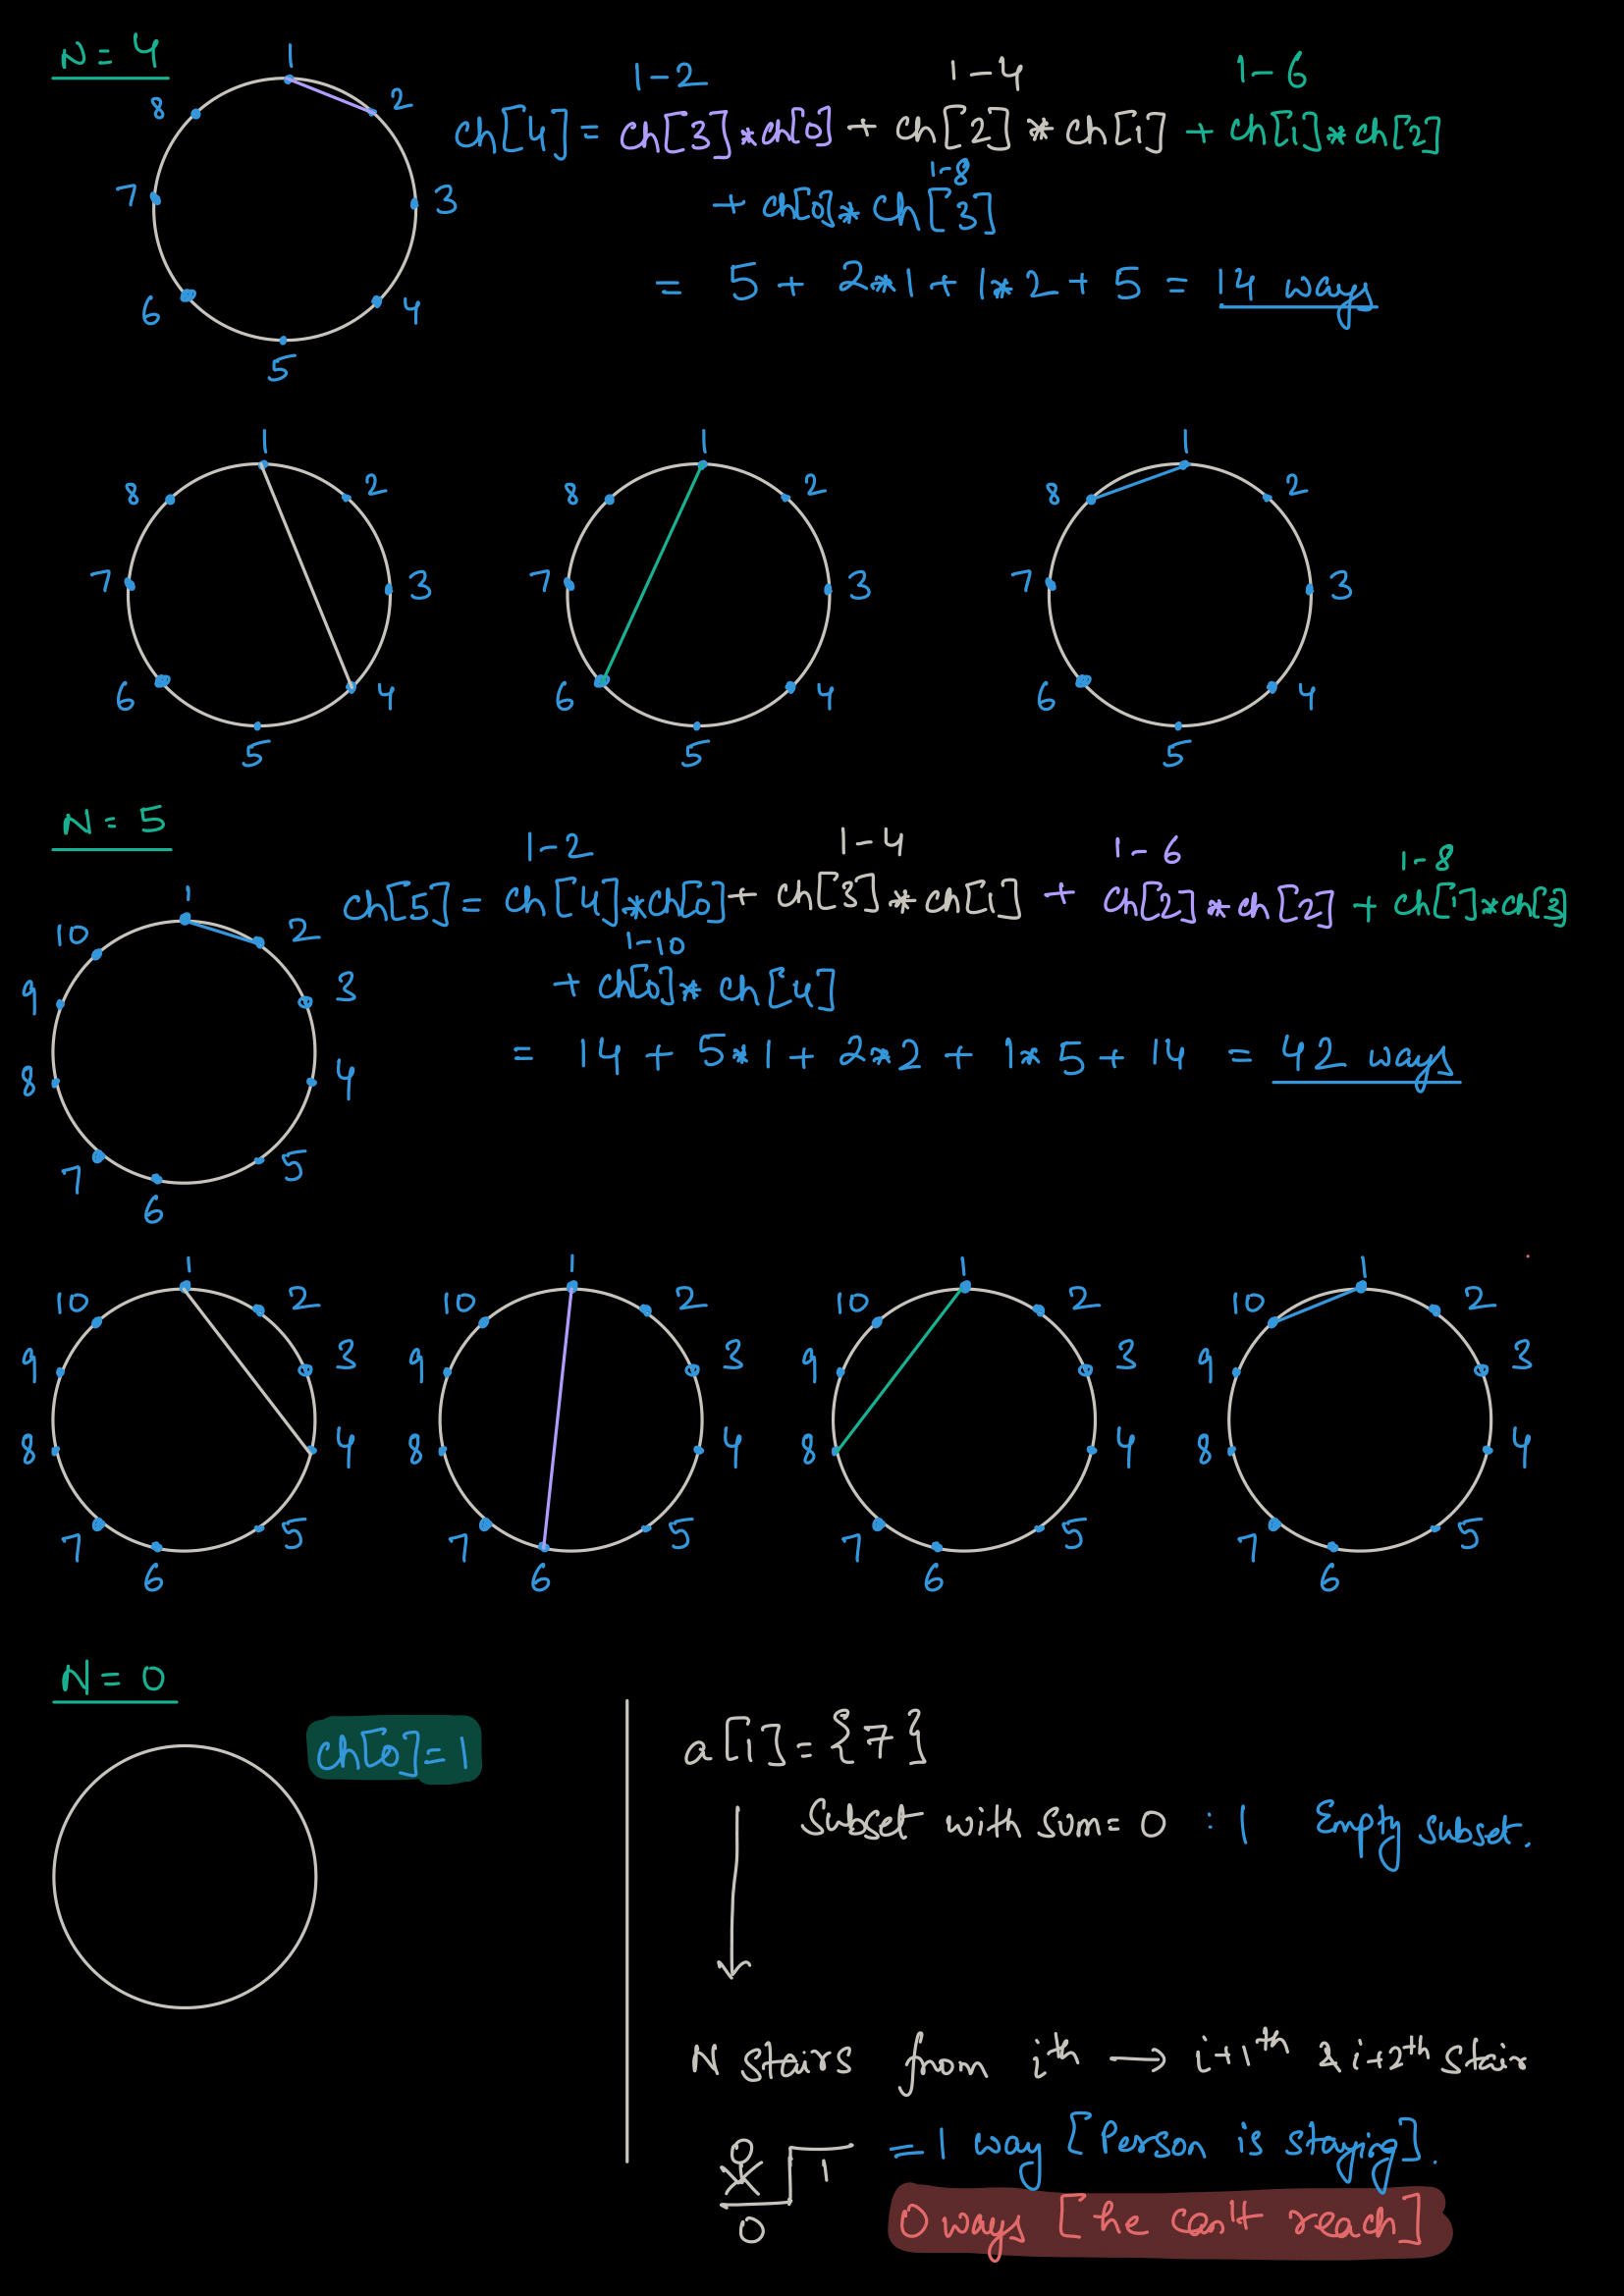 N = 4
1
2
3
4
5
6
7
8
1-2
1-4
1-6
ch[4] = ch[3]*ch[0] + ch[2]*ch[1] + ch[1]*ch[2]
1-8
+ ch[0]*ch[3]
= 5 + 2*1 + 1*2 + 5 = 14 ways
1
2
3
4
5
6
7
8
1
2
3
4
5
6
7
8
1
2
3
4
5
6
7
8
N = 5
1
2
3
4
5
6
7
8
9
10
1-2
1-4
1-6
1-8
ch[5] = ch[4]*ch[0] + ch[3]*ch[1] + ch[2]*ch[2] + ch[1]*ch[3]
1-10
+ ch[0]*ch[4]
= 14 + 5*1 + 2*2 + 1*5 + 14 = 42 ways
1
2
3
4
5
6
7
8
9
10
1
2
3
4
5
6
7
8
9
10
1
2
3
4
5
6
7
8
9
10
1
2
3
4
5
6
7
8
9
10
N = 0
ch[0] = 1
a[1] = {7}
Subset with sum = 0 : 1 Empty subset.
N stairs from i^th → i+1^th & i+2^th stair
0
1
= 1 way [Person is staying].
0 ways [he can't reach]